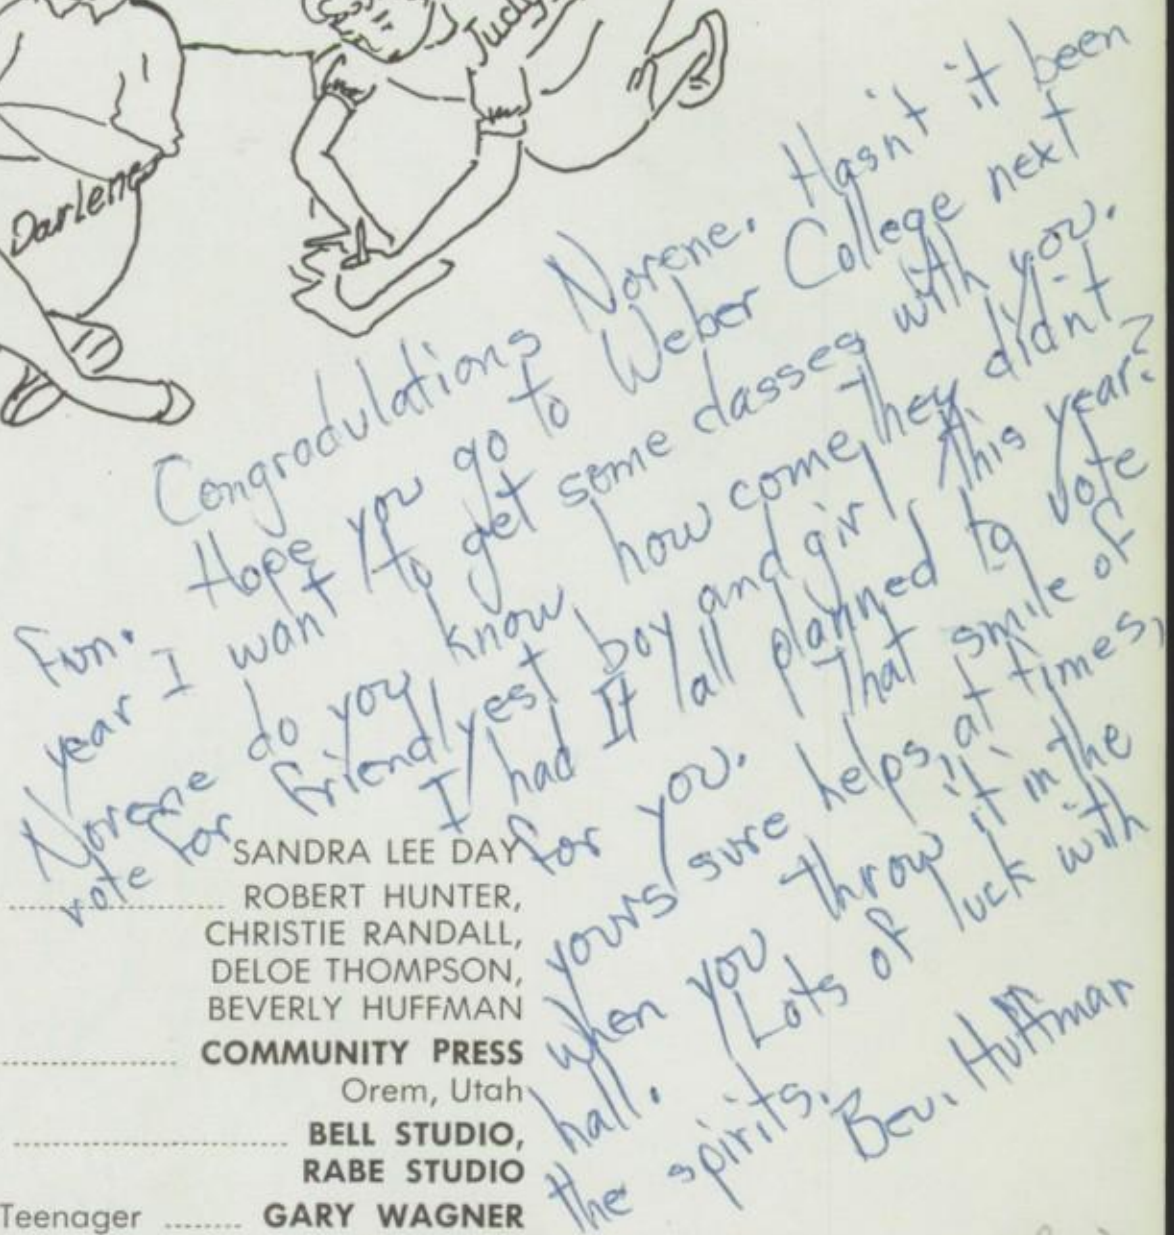 Judy
Darlene
Congradulations Norene. Hasn't it been
fun. Hope you go to Weber College next
year I want to get some classes with you.
Norene do you know how come they didn't
vote for friendlyest boy and girl this year?
I had It all planned to vote
for you. That smile of
yours sure helps, at times,
when you throw it in the
hall. Lots of luck with
the spirits. Bev. Huffman
SANDRA LEE DAY
........................ ROBERT HUNTER,
CHRISTIE RANDALL,
DELOE THOMPSON,
BEVERLY HUFFMAN
................... COMMUNITY PRESS
Orem, Utah
.............................. BELL STUDIO,
RABE STUDIO
Teenager ........ GARY WAGNER